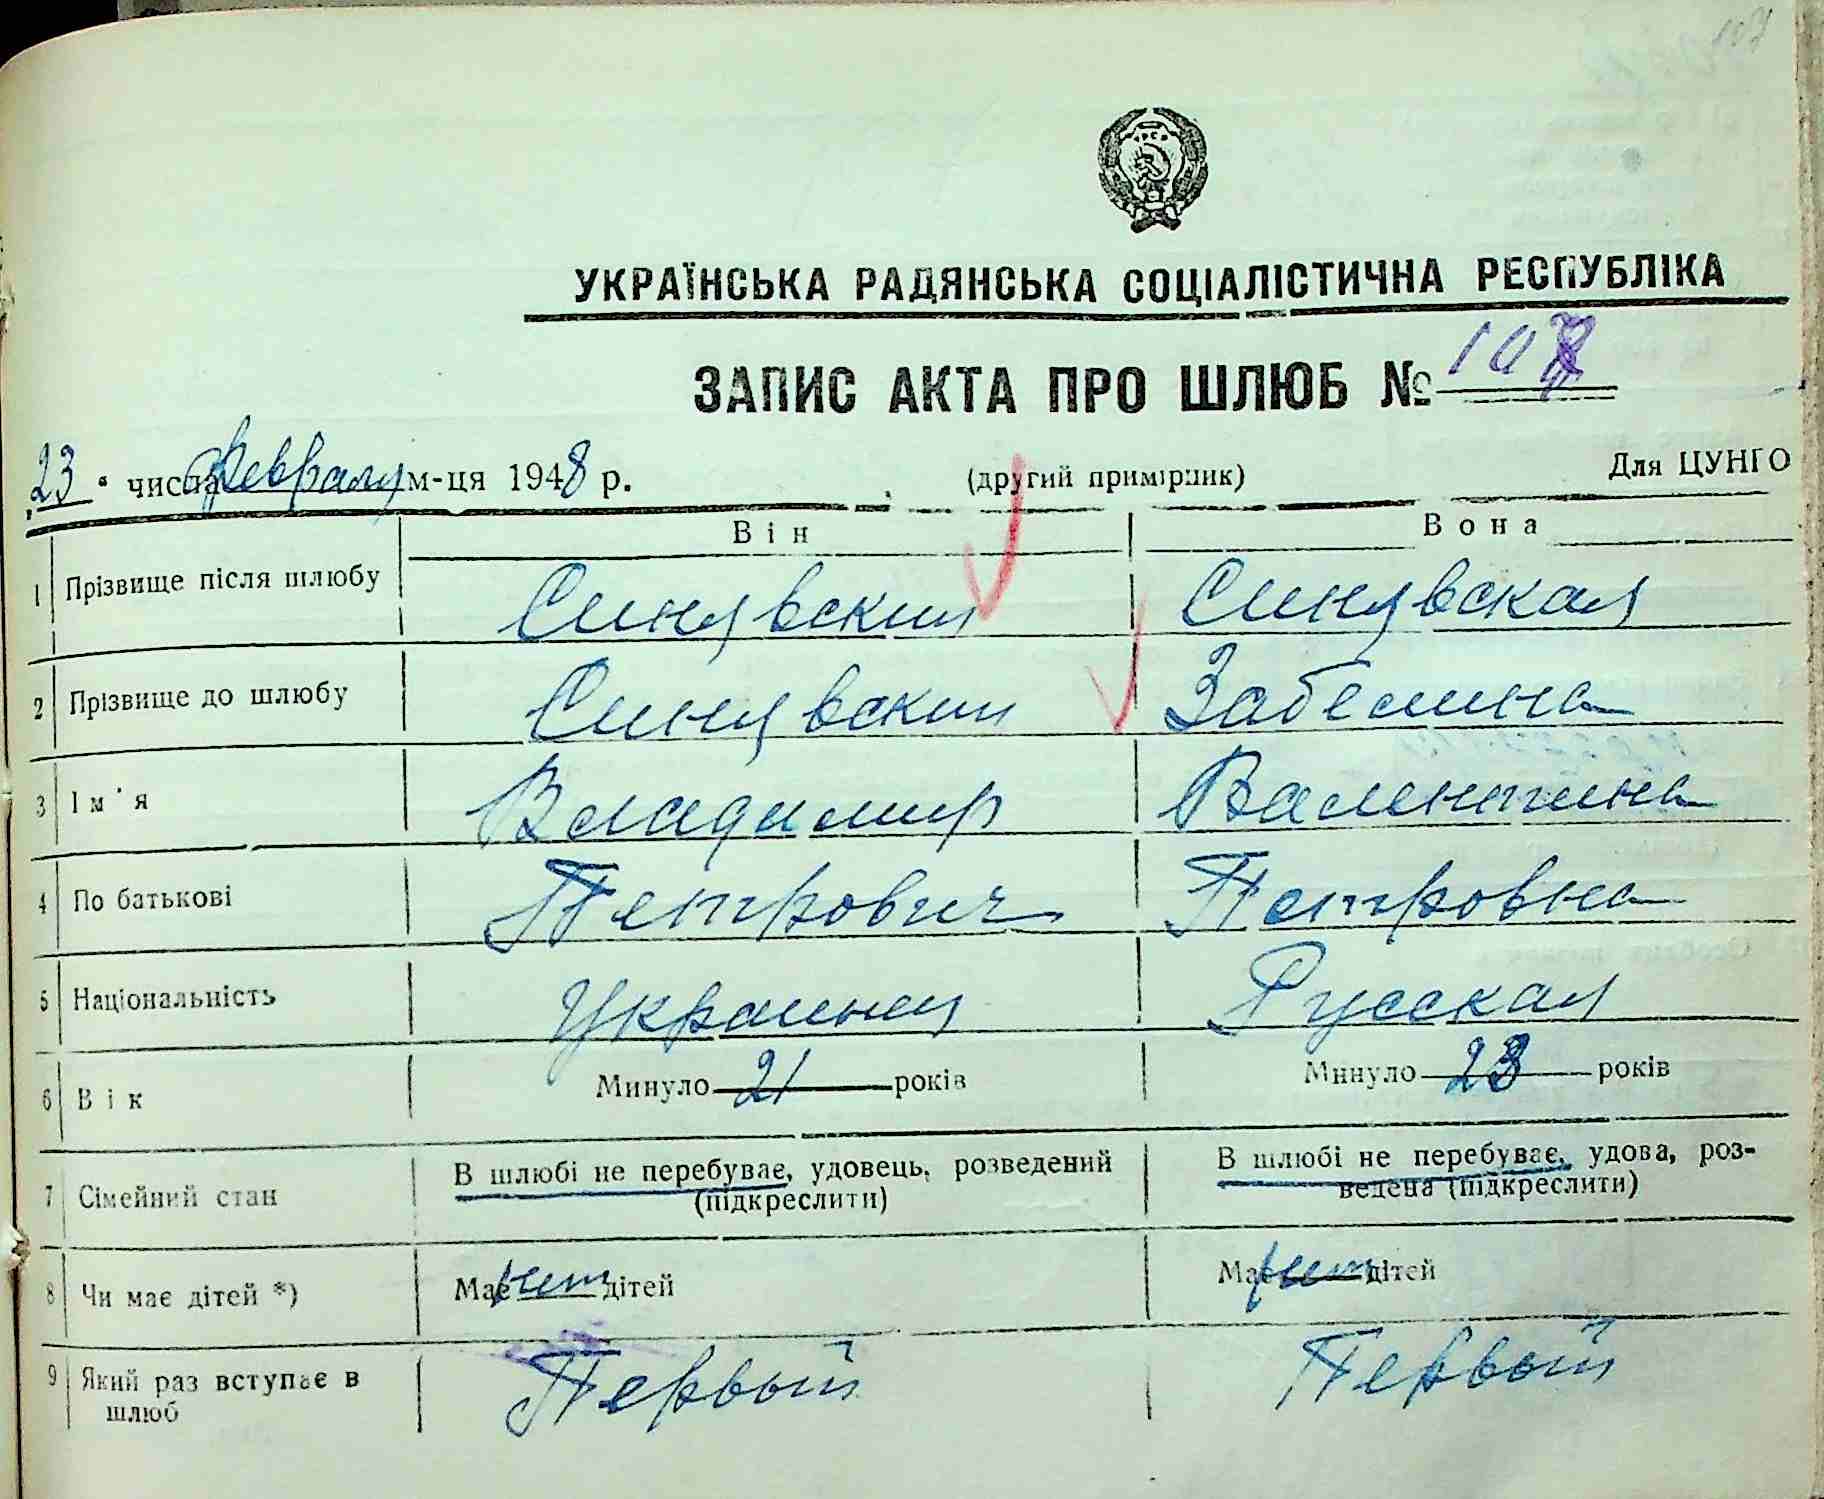 107
УКРАЇНСЬКА РАДЯНСЬКА СОЦІАЛІСТИЧНА РЕСПУБЛІКА
ЗАПИС АКТА ПРО ШЛЮБ № 107
"23" числа февраля м-ця 1948 р. (другий примірник) Для ЦУНГО
Він Вона
1 Прізвище після шлюбу Синявский Синявская
2 Прізвище до шлюбу Синявский Забелина
3 Ім'я Владимир Валентина
4 По батькові Петрович Петровна
5 Національність Украинец Русская
6 Вік Минуло 21 років Минуло 23 років
7 Сімейний стан В шлюбі не перебуває, удовець, розведений (підкреслити) В шлюбі не перебуває, удова, розведена (підкреслити)
8 Чи має дітей *) Має нет дітей Має нет дітей
9 Який раз вступає в шлюб Первый Первый